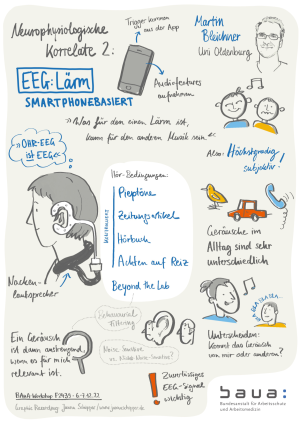 Neurophysiologische
Korrelate 2:
EEG:Lärm
SMARTPHONEBASIERT
Trigger kommen
aus der App
Audiofeatures
aufnehmen
Martin
Bleichner
Uni Oldenburg
»Was für den einen Lärm ist,
kann für den anderen Musik sein.«
»OHR-EEG
ist EEG«
Also: Höchstgradig
subjektiv!
Hör-Bedingungen:
Pieptöne
Zeitungsartikel
Hörbuch
Achten auf Reiz
Beyond the Lab
Nacken-
lautsprecher
Geräusche im
Alltag sind sehr
unterschiedlich
BLA BLA BLA
Unterscheiden:
Kommt das Geräusch
von mir oder anderen?
Ein Geräusch
ist dann anstrengend,
wenn es für mich
relevant ist.
Noise Sensitive
vs. Noise Non-Sensitive?
Zuverlässiges
EEG-Signal
wichtig
BAuA Workshop
Graphic Recording: Janna Schapper / www.jannaschapper.de
baua:
Bundesanstalt für Arbeitsschutz
und Arbeitsmedizin